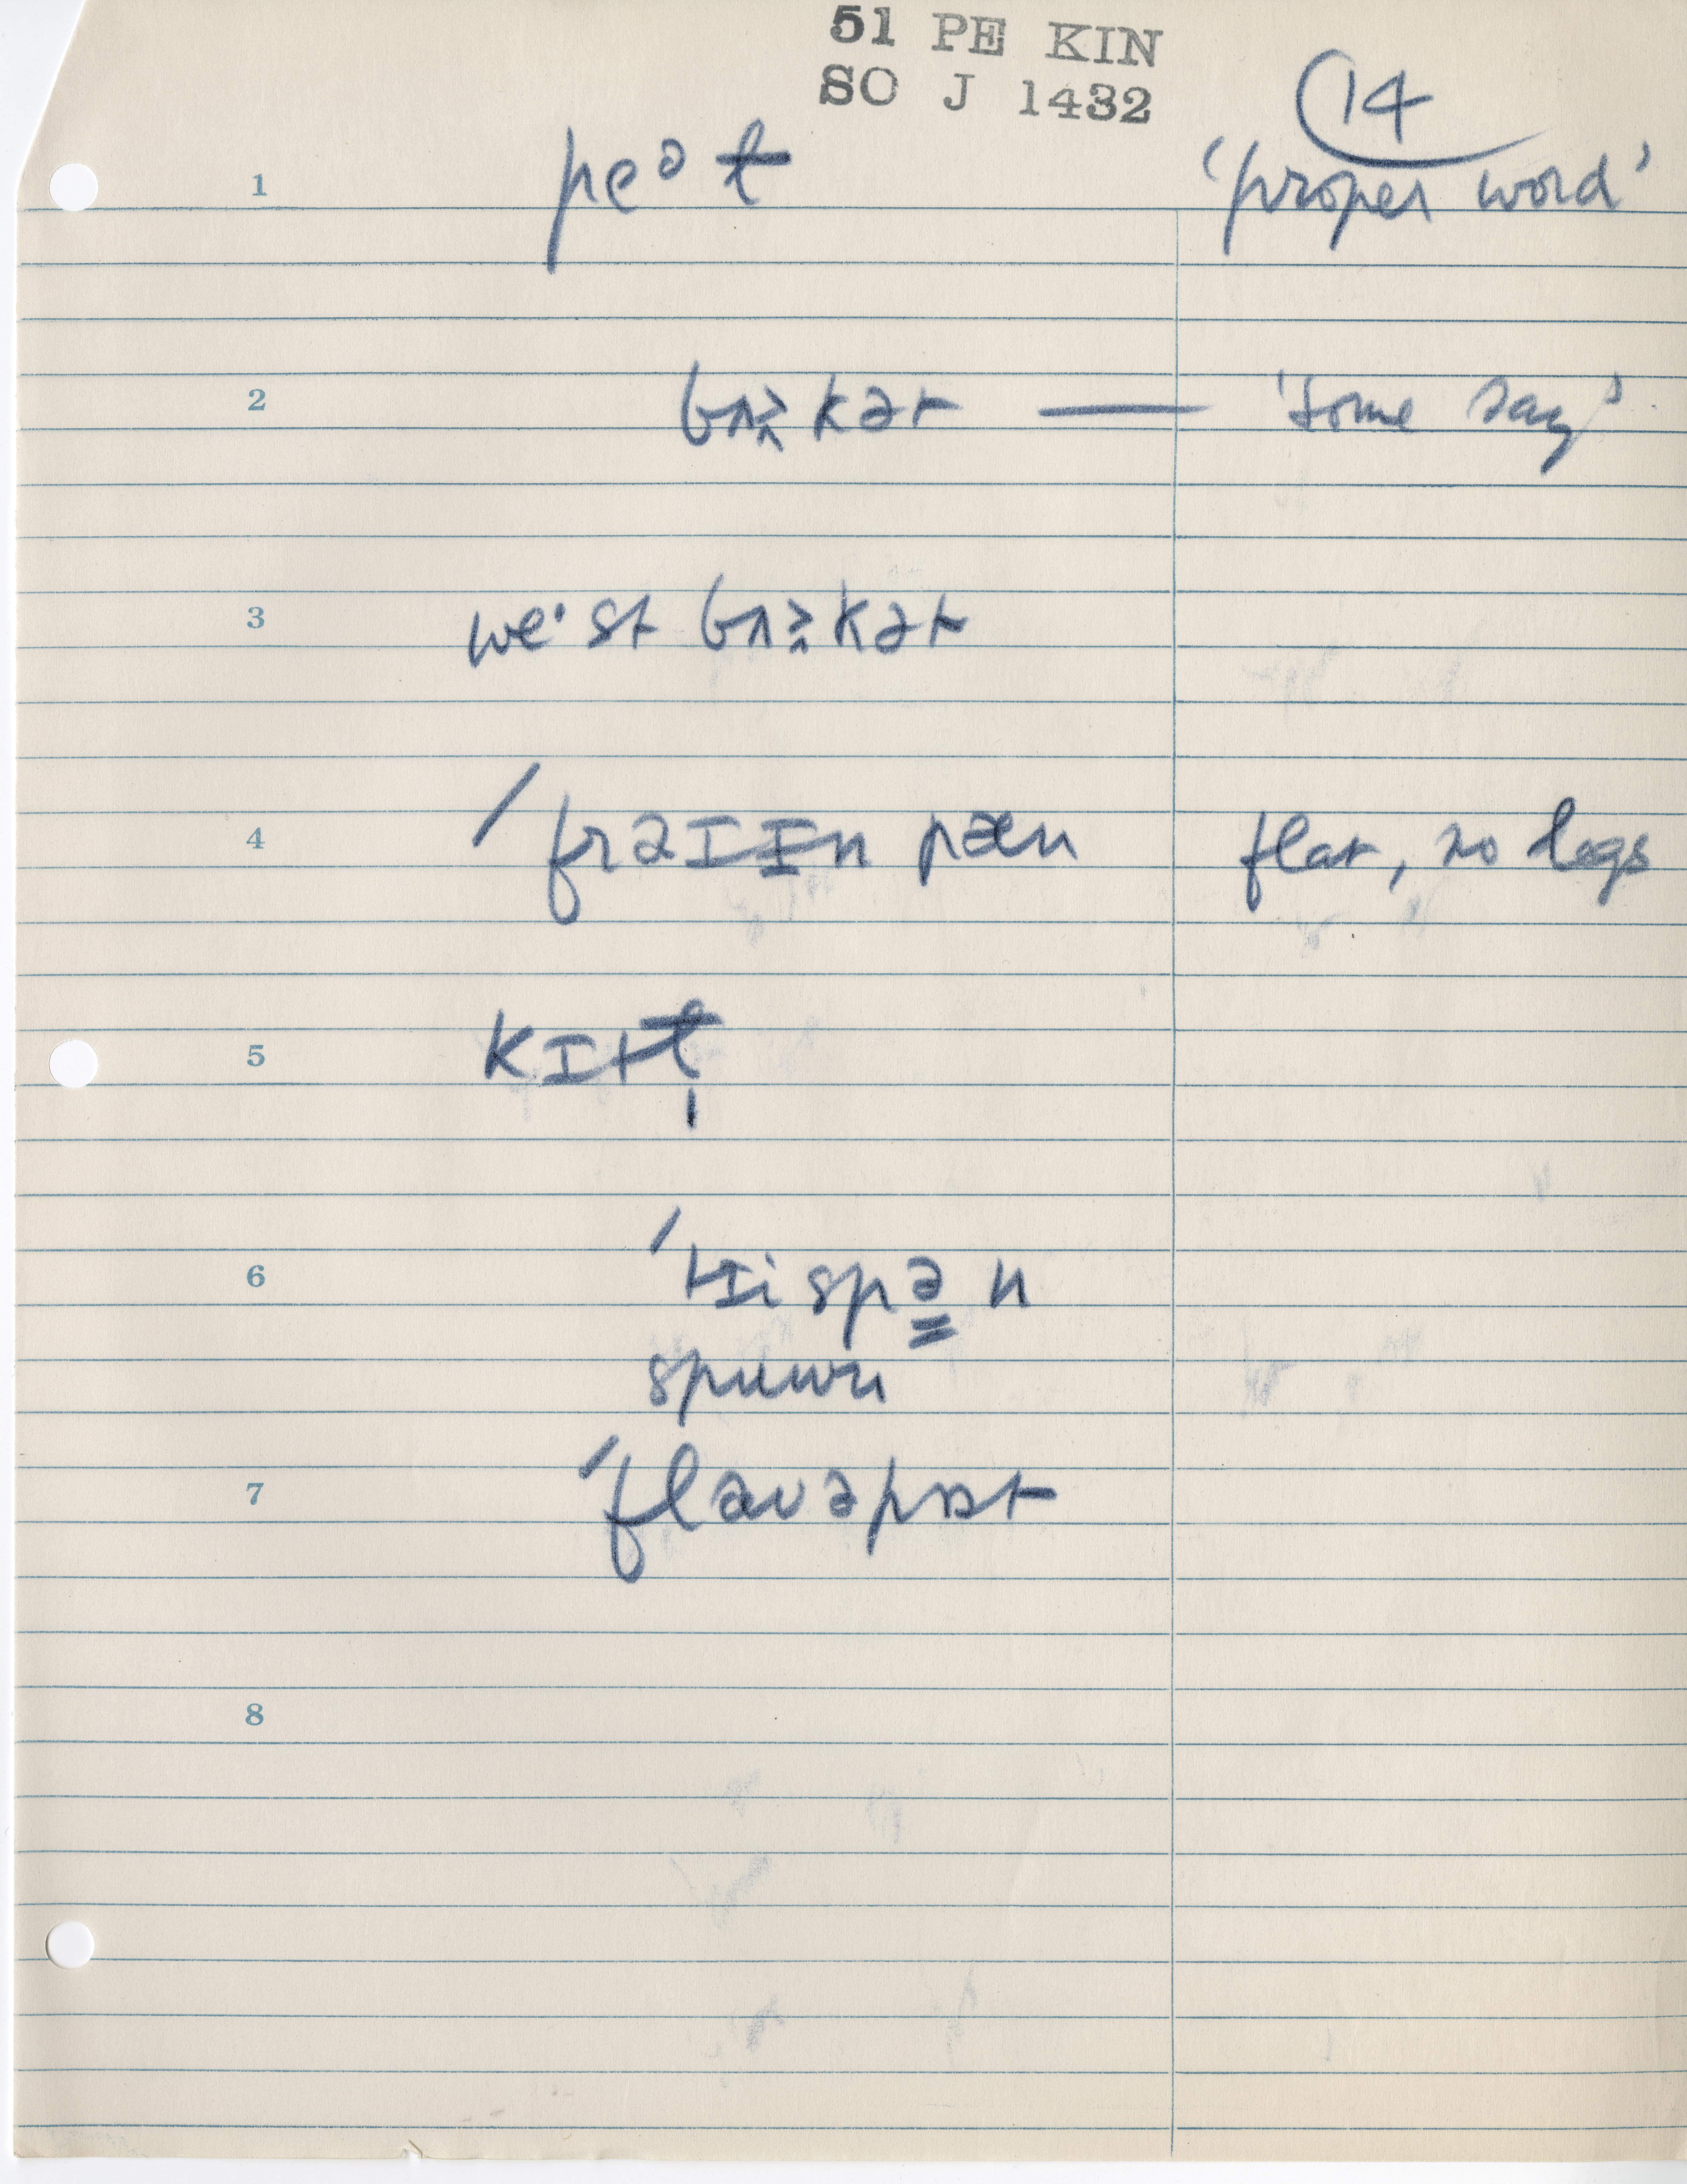 51 PE KIN
SO J 1432
14
1 peᵊɫ 'proper word'
2 bʌkət — 'some say'
3 we·st bʌkət
4 ˈfraɪɪn pæn flat, no legs
5 kɪtɫ̩
6 spə̳n
spuwn
7 ˈflaʊəpɒt
8